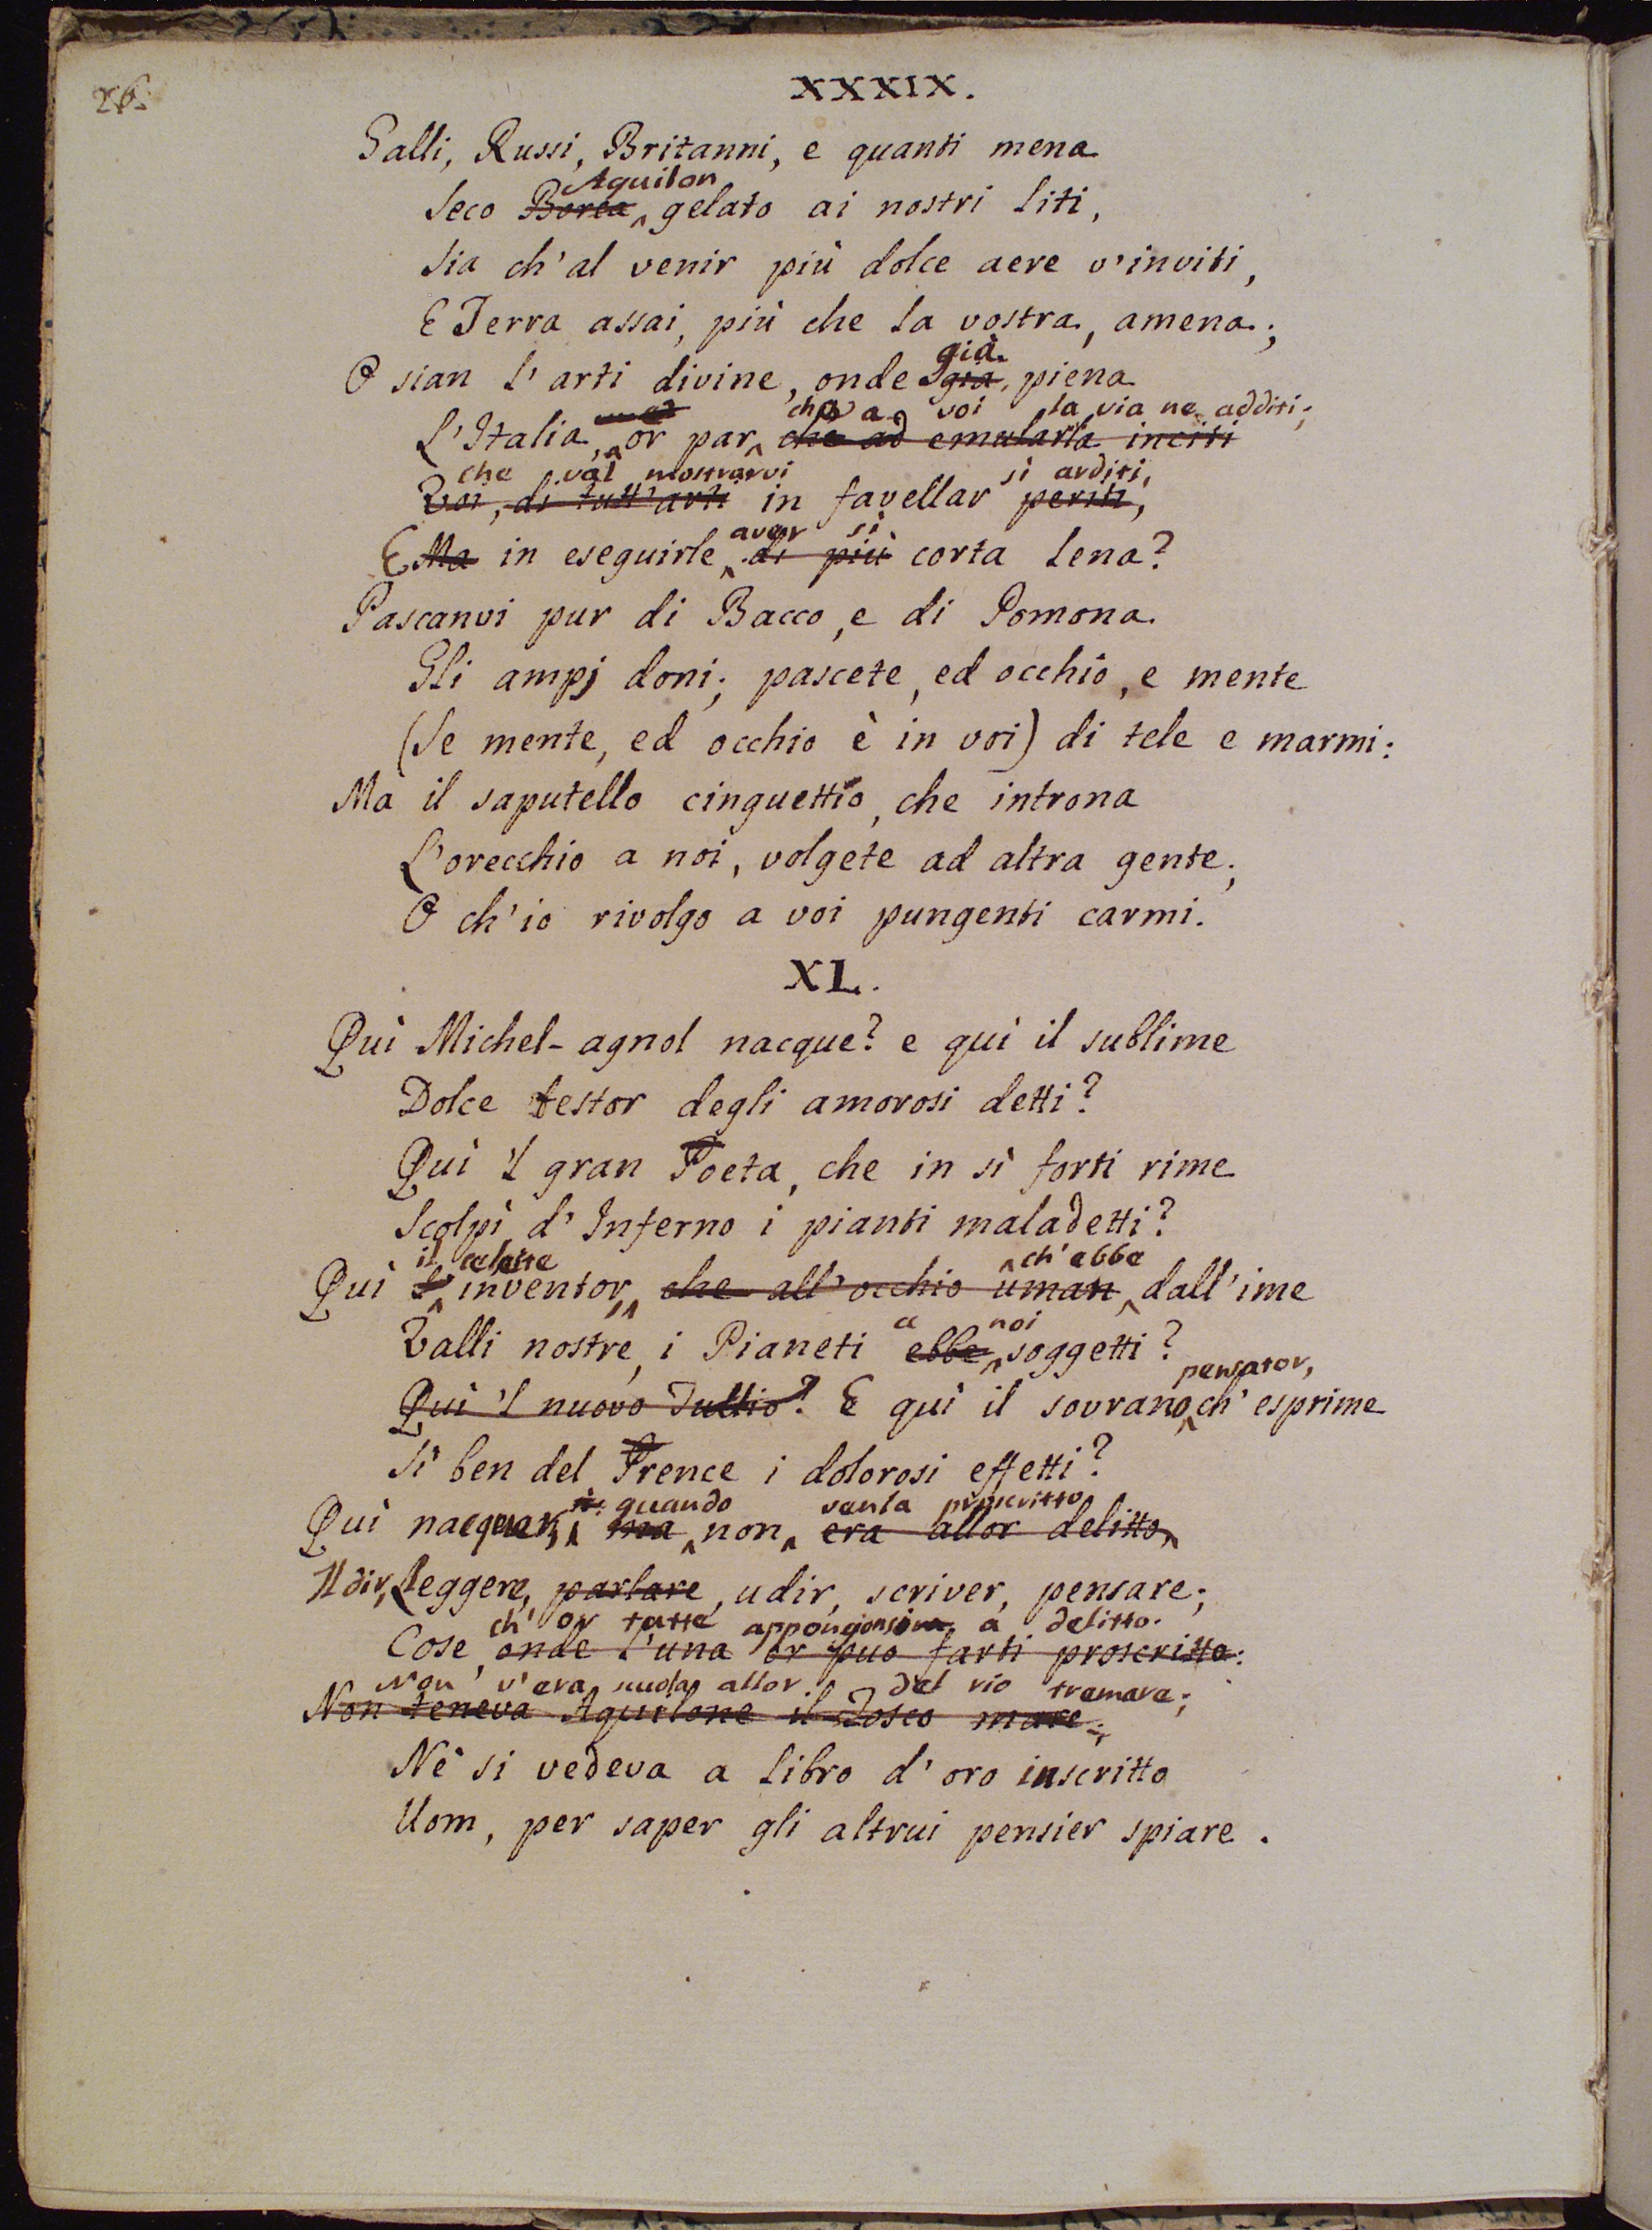 26.
XXXIX.
Galli, Russi, Britanni, e quanti mena
Aquilon
Seco Borea gelato ai nostri liti,
Sia ch'al venir più dolce aere v'inviti,
E Terra assai, più che la vostra, amena;
già
O sian l'arti divine, onde già piena
che a voi la via ne additi;
L'Italia, or par che ad emularla inciti
che val mostrarvi sì arditi,
Voi, di tutt'arti in favellar periti,
aver sì
E Ma in eseguirle di più corta lena?
Pascanvi pur di Bacco, e di Pomona
Gli ampj doni; pascete, ed occhio, e mente
(Se mente, ed occhio è in voi) di tele e marmi:
Ma il saputello cinguettio, che introna
L'orecchio a noi, volgete ad altra gente;
O ch'io rivolgo a voi pungenti carmi.
XL.
Quì Michel-agnol nacque? e quì il sublime
Dolce testor degli amorosi detti?
Quì 'l gran Poeta, che in sì forti rime
Scolpì d'Inferno i pianti maladetti?
il celeste ch'ebbe
Quì l'inventor, che all'occhio uman, dall'ime
a noi
Valli nostre, i Pianeti ebbe soggetti?
pensator,
Quì 'l nuovo Tullio? E quì il sovrano ch'esprime
Sì ben del Prence i dolorosi effetti?
quando venia proscritto
Quì nacquer, ma non era allor delitto,
Il dir, Leggere, parlare, udir, scriver, pensare;
ch'or tutte appongonsi a delitto.
Cose, onde l'una or puo farti proscritto:
Non v'era nuda allor del rio tremare;
Non teneva Aquilone il Tosco mare;
Nè si vedeva a libro d'oro inscritto
Uom, per saper gli altrui pensier spiare.